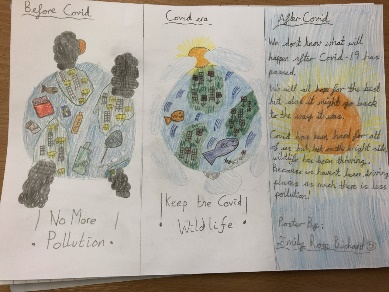 Before Covid
No More
Pollution.
Covid era
Keep the Covid
Wildlife
After Covid
We don't know what will
happen after Covid-19 has
passed.
We will all hope for the best
but also it might go back
to the way it was.
Covid has been hard for all
of us but on the bright side
wildlife has been thriving.
Because we haven't been driving
places as much there is less
pollution!
Poster By:
Emily Rose